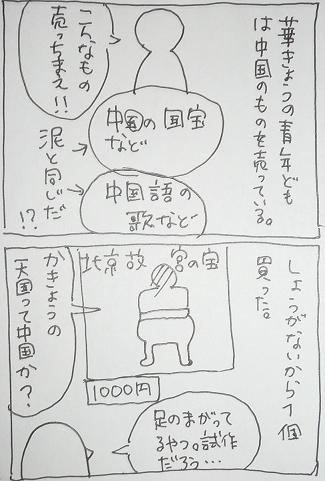 華きょうの青年ども
は中国のものを売っている。
こんなもの
売っちまえ!!
中国の国宝
など
中国語の
歌など
泥と同じだ
!?
しょうがないから1個
買った。
北京故宮の宝
1000円
かきょうの
天国って中国か?
足のまがって
るやつ。試作
だろう…